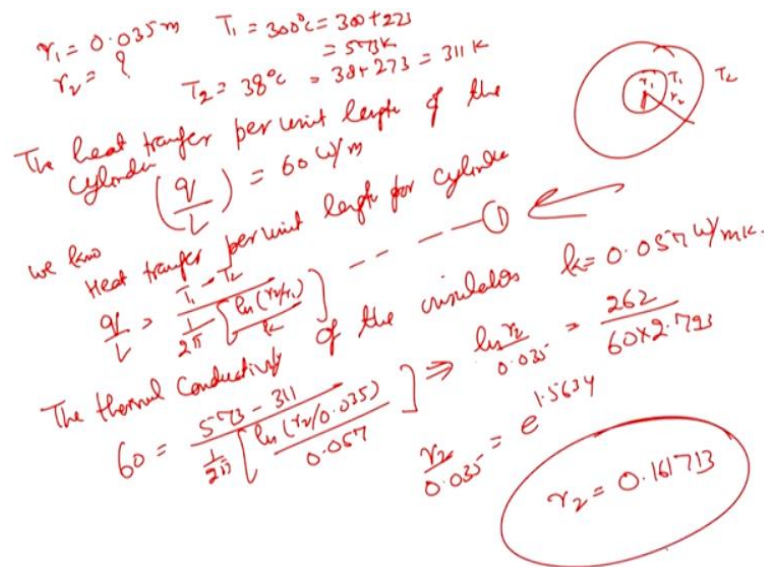 r₁ = 0.035m T₁ = 300°C = 300+273
= 573K
r₂ = ?
T₂ = 38°C = 38+273 = 311 K
r₁ T₁ T₂
r₂
The heat tranfer per unit length of the
cylinder (q/L) = 60 W/m
we know
Heat tranfer per unit length for cylinder
q/L = T₁-T₂ / 1/2π [ln(r₂/r₁)/k] ----- ①
The thermal Conductivity of the insulator k = 0.057 W/mK.
60 = 573-311 / 1/2π [ln(r₂/0.035)/0.057] ⇒ ln r₂/0.035 = 262/60×2.793
r₂/0.035 = e^1.5634
r₂ = 0.161713